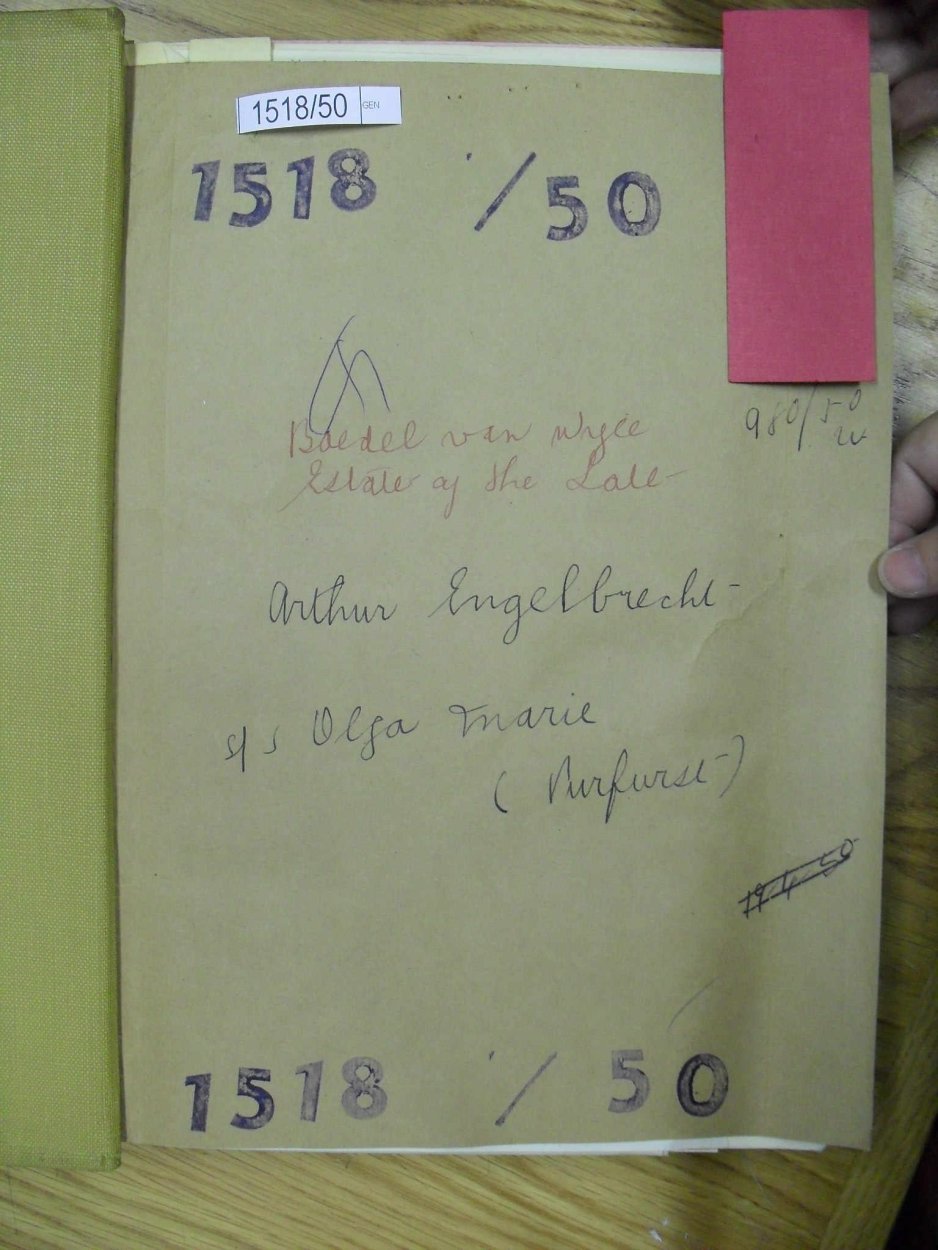 1518/50 GEN
1518 / 50
980/50
Boedel van wyle
Estate of the Late
Arthur Engelbrecht
s/s Olga Marie
(Purfurst)
19 4 50
1518 / 50